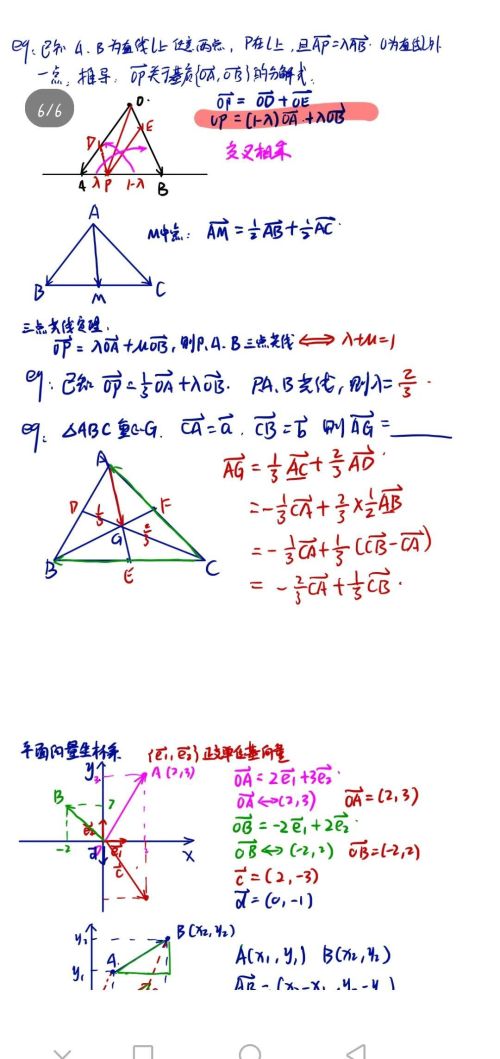 eg: 已知 A.B为直线l上任意两点, P在l上, 且AP=λAB. O为直线l外
一点, 推导: OP关于基底{OA, OB}的分解式.
6/6
O
D
E
A λ P 1-λ B
OP = OD + OE
OP = (1-λ)OA + λOB
交叉相乘
A
B M C
M中点: AM = 1/2 AB + 1/2 AC
三点共线定理.
OP = λOA + μOB, 则P.A.B三点共线 ⟺ λ+μ=1
eg: 已知 OP = 1/3 OA + λOB. P.A.B共线, 则λ= 2/3 .
eg: △ABC 重心G. CA=a. CB=b 则 AG = ______
A
D 1/3 F
G 2/3
B E C
AG = 1/3 AC + 2/3 AD
= -1/3 CA + 2/3 × 1/2 AB
= -1/3 CA + 1/3 (CB - CA)
= -2/3 CA + 1/3 CB .
平面向量坐标系 {e1, e2} 正交单位基向量
y
3
A (2,3)
B
2
e2
-2
O
e1
x
d
c
OA = 2e1 + 3e2 .
OA ↔ (2,3) OA = (2,3)
OB = -2e1 + 2e2 .
OB ↔ (-2,2) OB = (-2,2)
c = (2,-3)
d = (0,-1)
y2
B (x2, y2)
y1
A
A(x1, y1) B(x2, y2)
AB = (x2-x1, y2-y1)